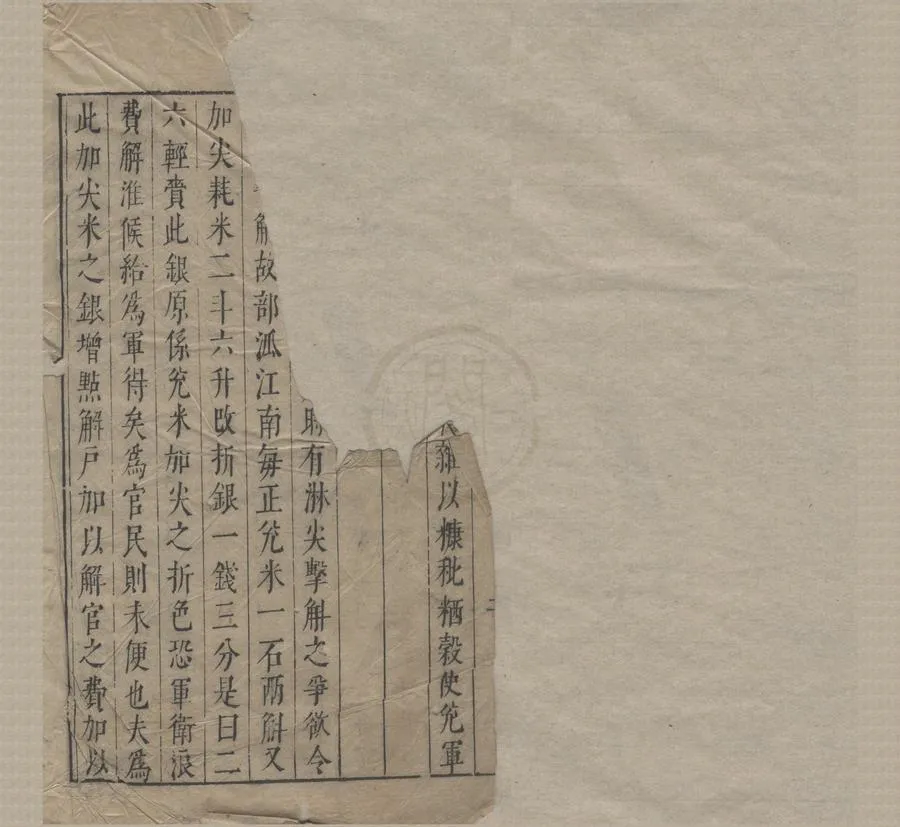 雜以糠秕粞穀使兊軍
有淋尖擊斛之爭欲令
解故部派江南每正兊米一石兩斛又
加尖耗米二斗六升改折銀一錢三分是曰二
六輕賫此銀原係兊米加尖之折色恐軍衛浪
費解淮候給為軍得矣為官民則未便也夫為
此加尖米之銀增㸃解戶加以解官之費加以